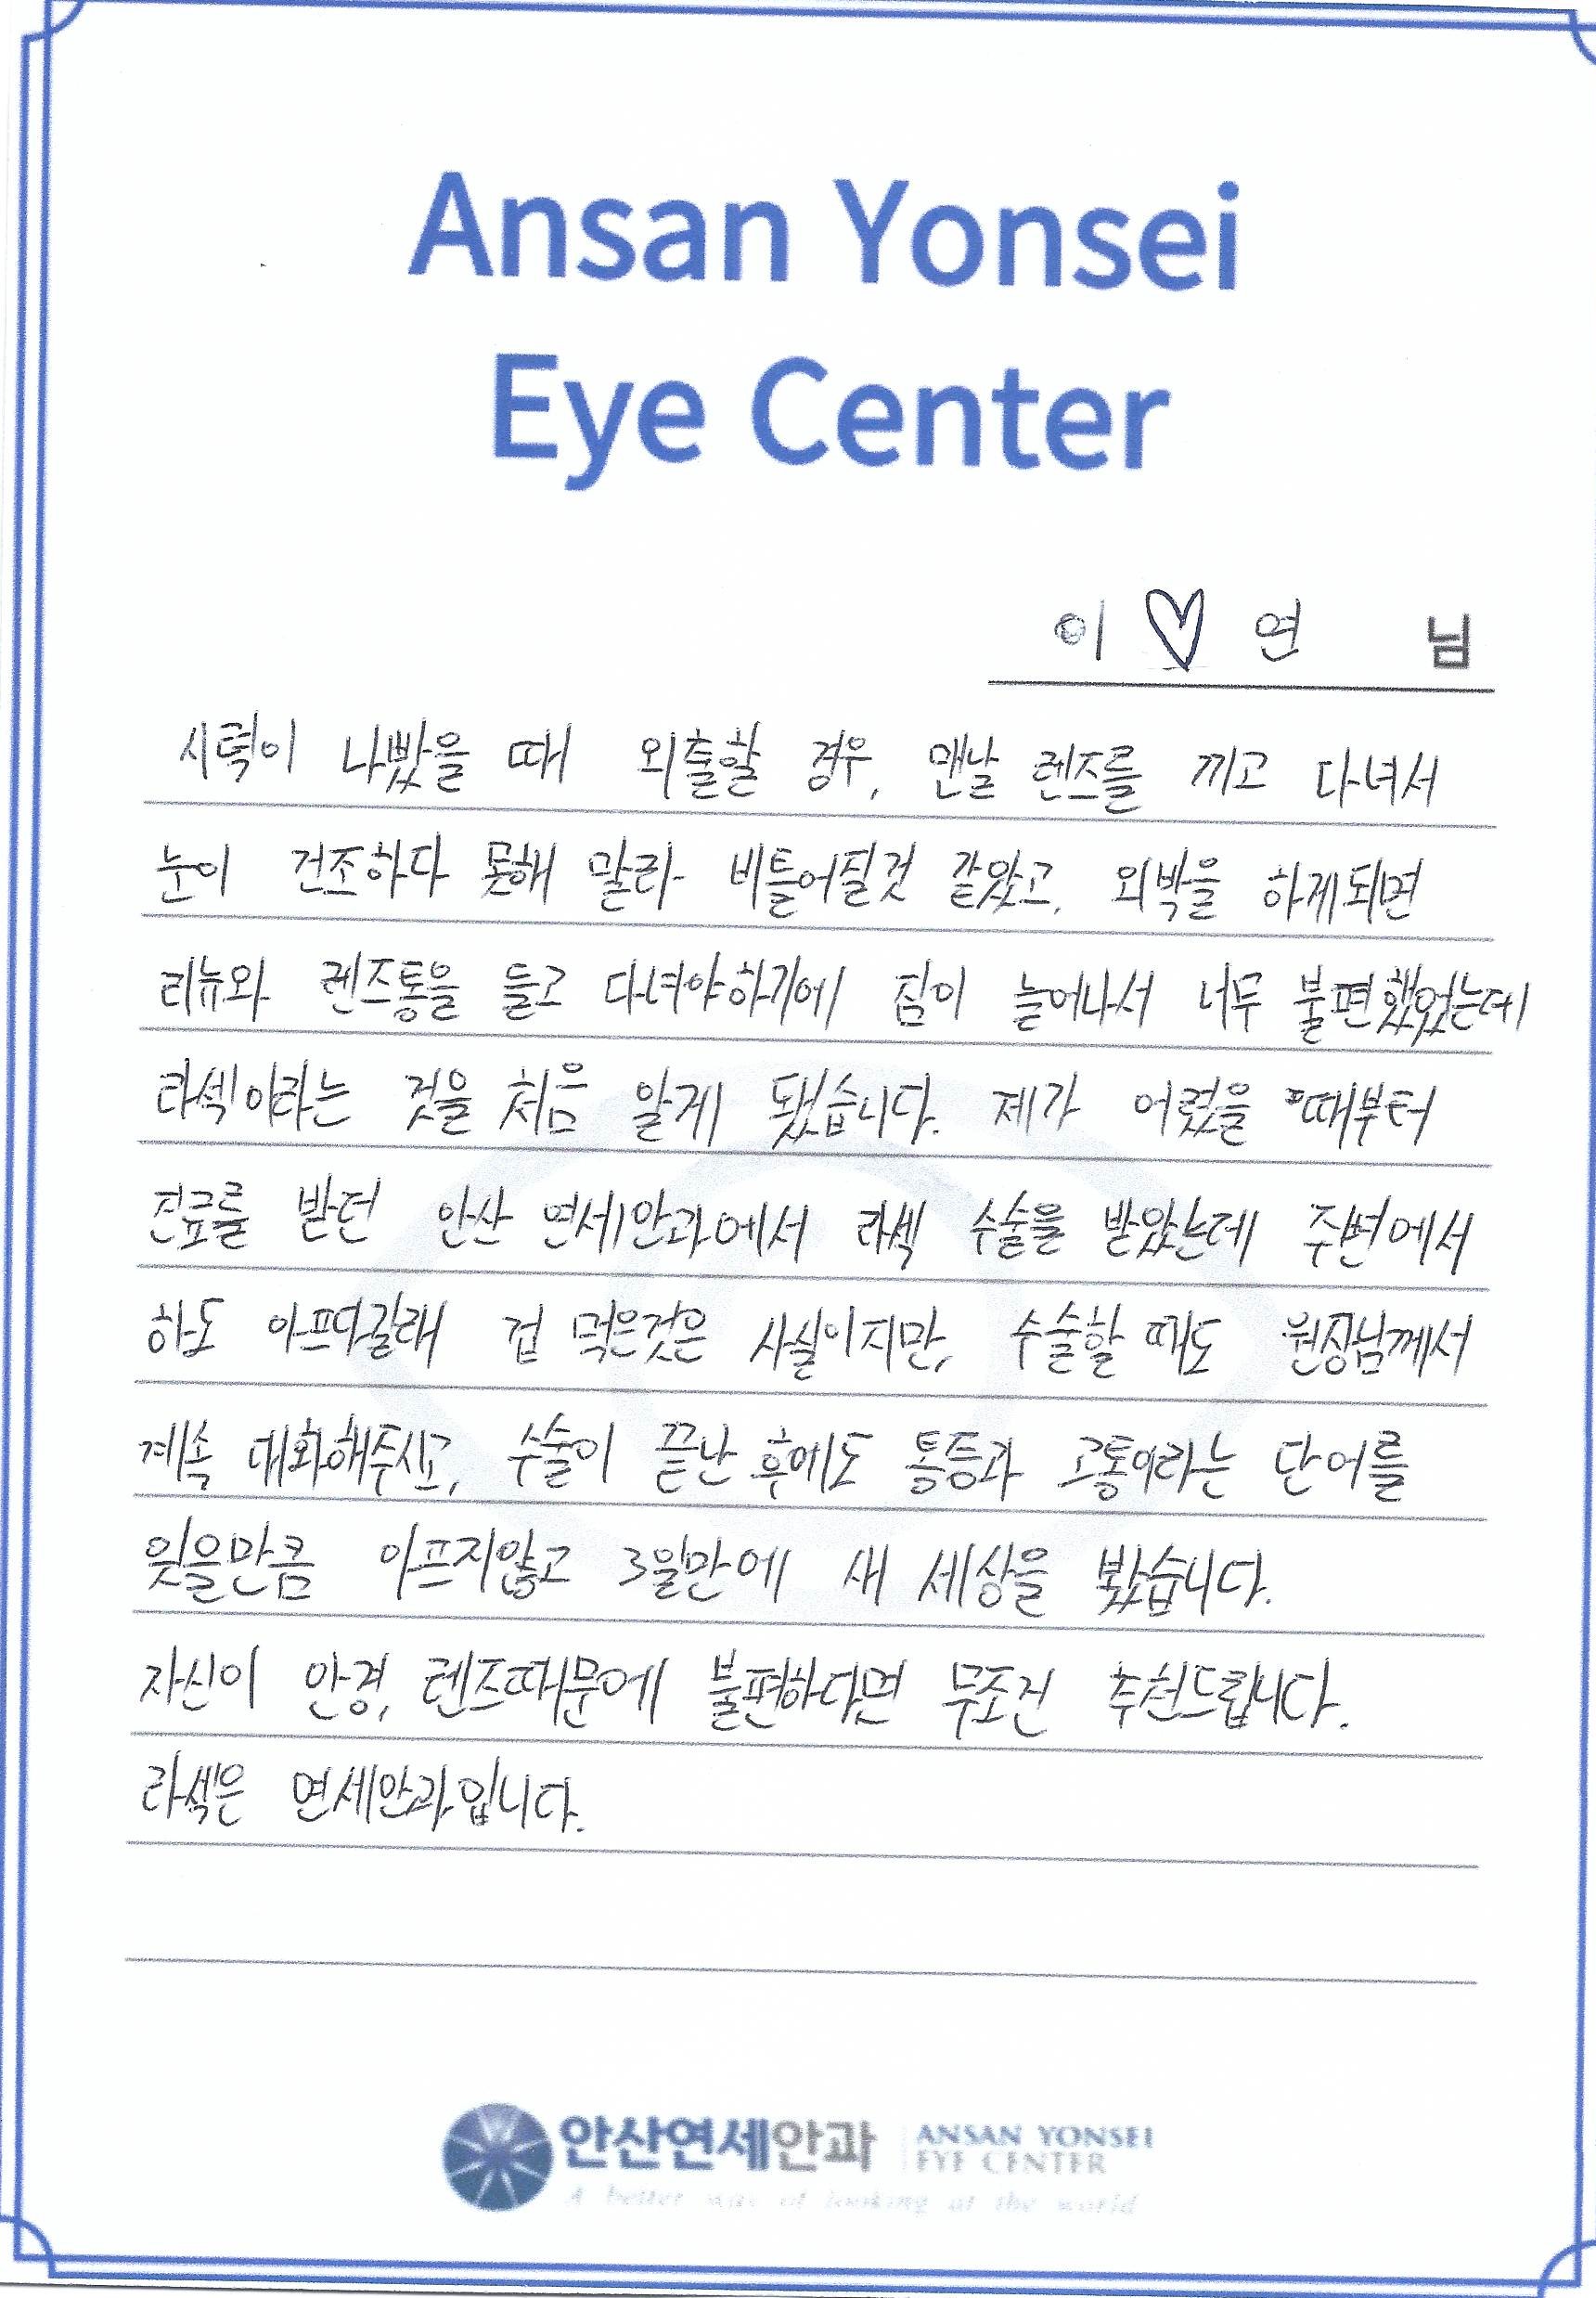 Ansan Yonsei
Eye Center
이 ♡ 연 님
시력이 나빴을 때 외출할 경우, 맨날 렌즈를 끼고 다녀서
눈이 건조하다 못해 말라 비틀어질것 같았고, 외박을 하게되면
리뉴와 렌즈통을 들고 다녀야하기에 짐이 늘어나서 너무 불편했었는데
라섹이라는 것을 처음 알게 됐습니다. 제가 어렸을 때부터
진료를 받던 안산 연세안과에서 라섹 수술을 받았는데 주변에서
하도 아프다길래 겁 먹은것은 사실이지만, 수술할 때도 원장님께서
계속 대화해주시고, 수술이 끝난 후에도 통증과 고통이라는 단어를
잊을만큼 아프지않고 3일만에 새 세상을 봤습니다.
자신이 안경, 렌즈때문에 불편하다면 무조건 추천드립니다.
라섹은 연세안과입니다.
안산연세안과 ANSAN YONSEI
EYE CENTER
A better way of looking at the world